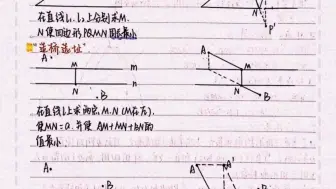 N
P'
在直线l₁.l₂上分别求M.
N使四边形PQMN周长最小
"造桥选址"
A
M
m
N
n
B
A
M
N
B
在直线l上求两点M.N(M在左)
使MN=a.并使AM+MN+NB的
值最小
A
A
A'